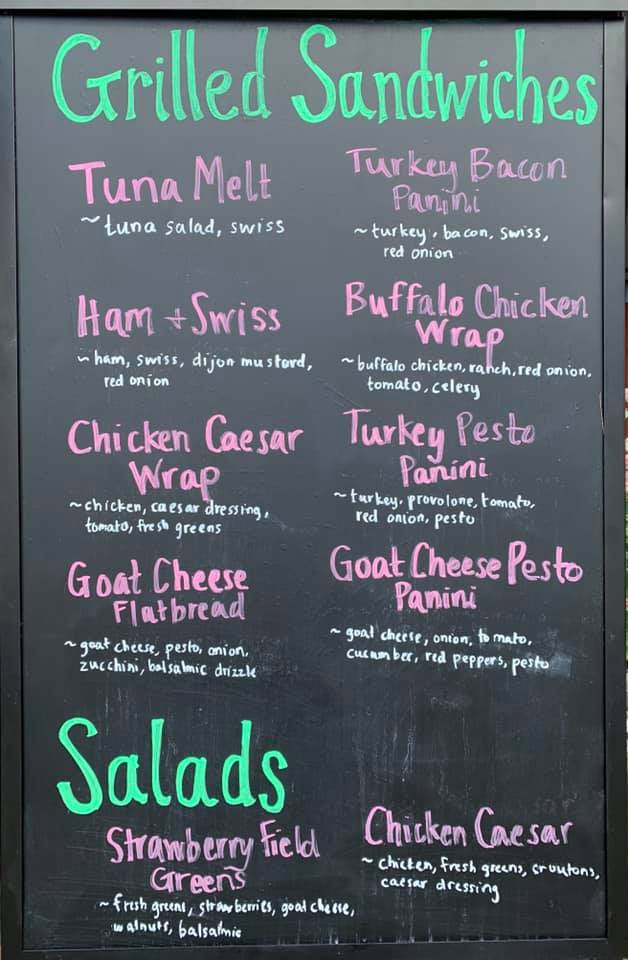 Grilled Sandwiches
Tuna Melt
~tuna salad, swiss
Turkey Bacon
Panini
~turkey, bacon, swiss,
red onion
Ham + Swiss
~ham, swiss, dijon mustard,
red onion
Buffalo Chicken
Wrap
~buffalo chicken, ranch, red onion,
tomato, celery
Chicken Caesar
Wrap
~chicken, caesar dressing,
tomato, fresh greens
Turkey Pesto
Panini
~turkey, provolone, tomato,
red onion, pesto
Goat Cheese
Flatbread
~goat cheese, pesto, onion,
zucchini, balsalmic drizzle
Goat Cheese Pesto
Panini
~goat cheese, onion, tomato,
cucumber, red peppers, pesto
Salads
Strawberry Field
Greens
~fresh greens, strawberries, goat cheese,
walnuts, balsalmic
Chicken Caesar
~chicken, fresh greens, croutons,
caesar dressing